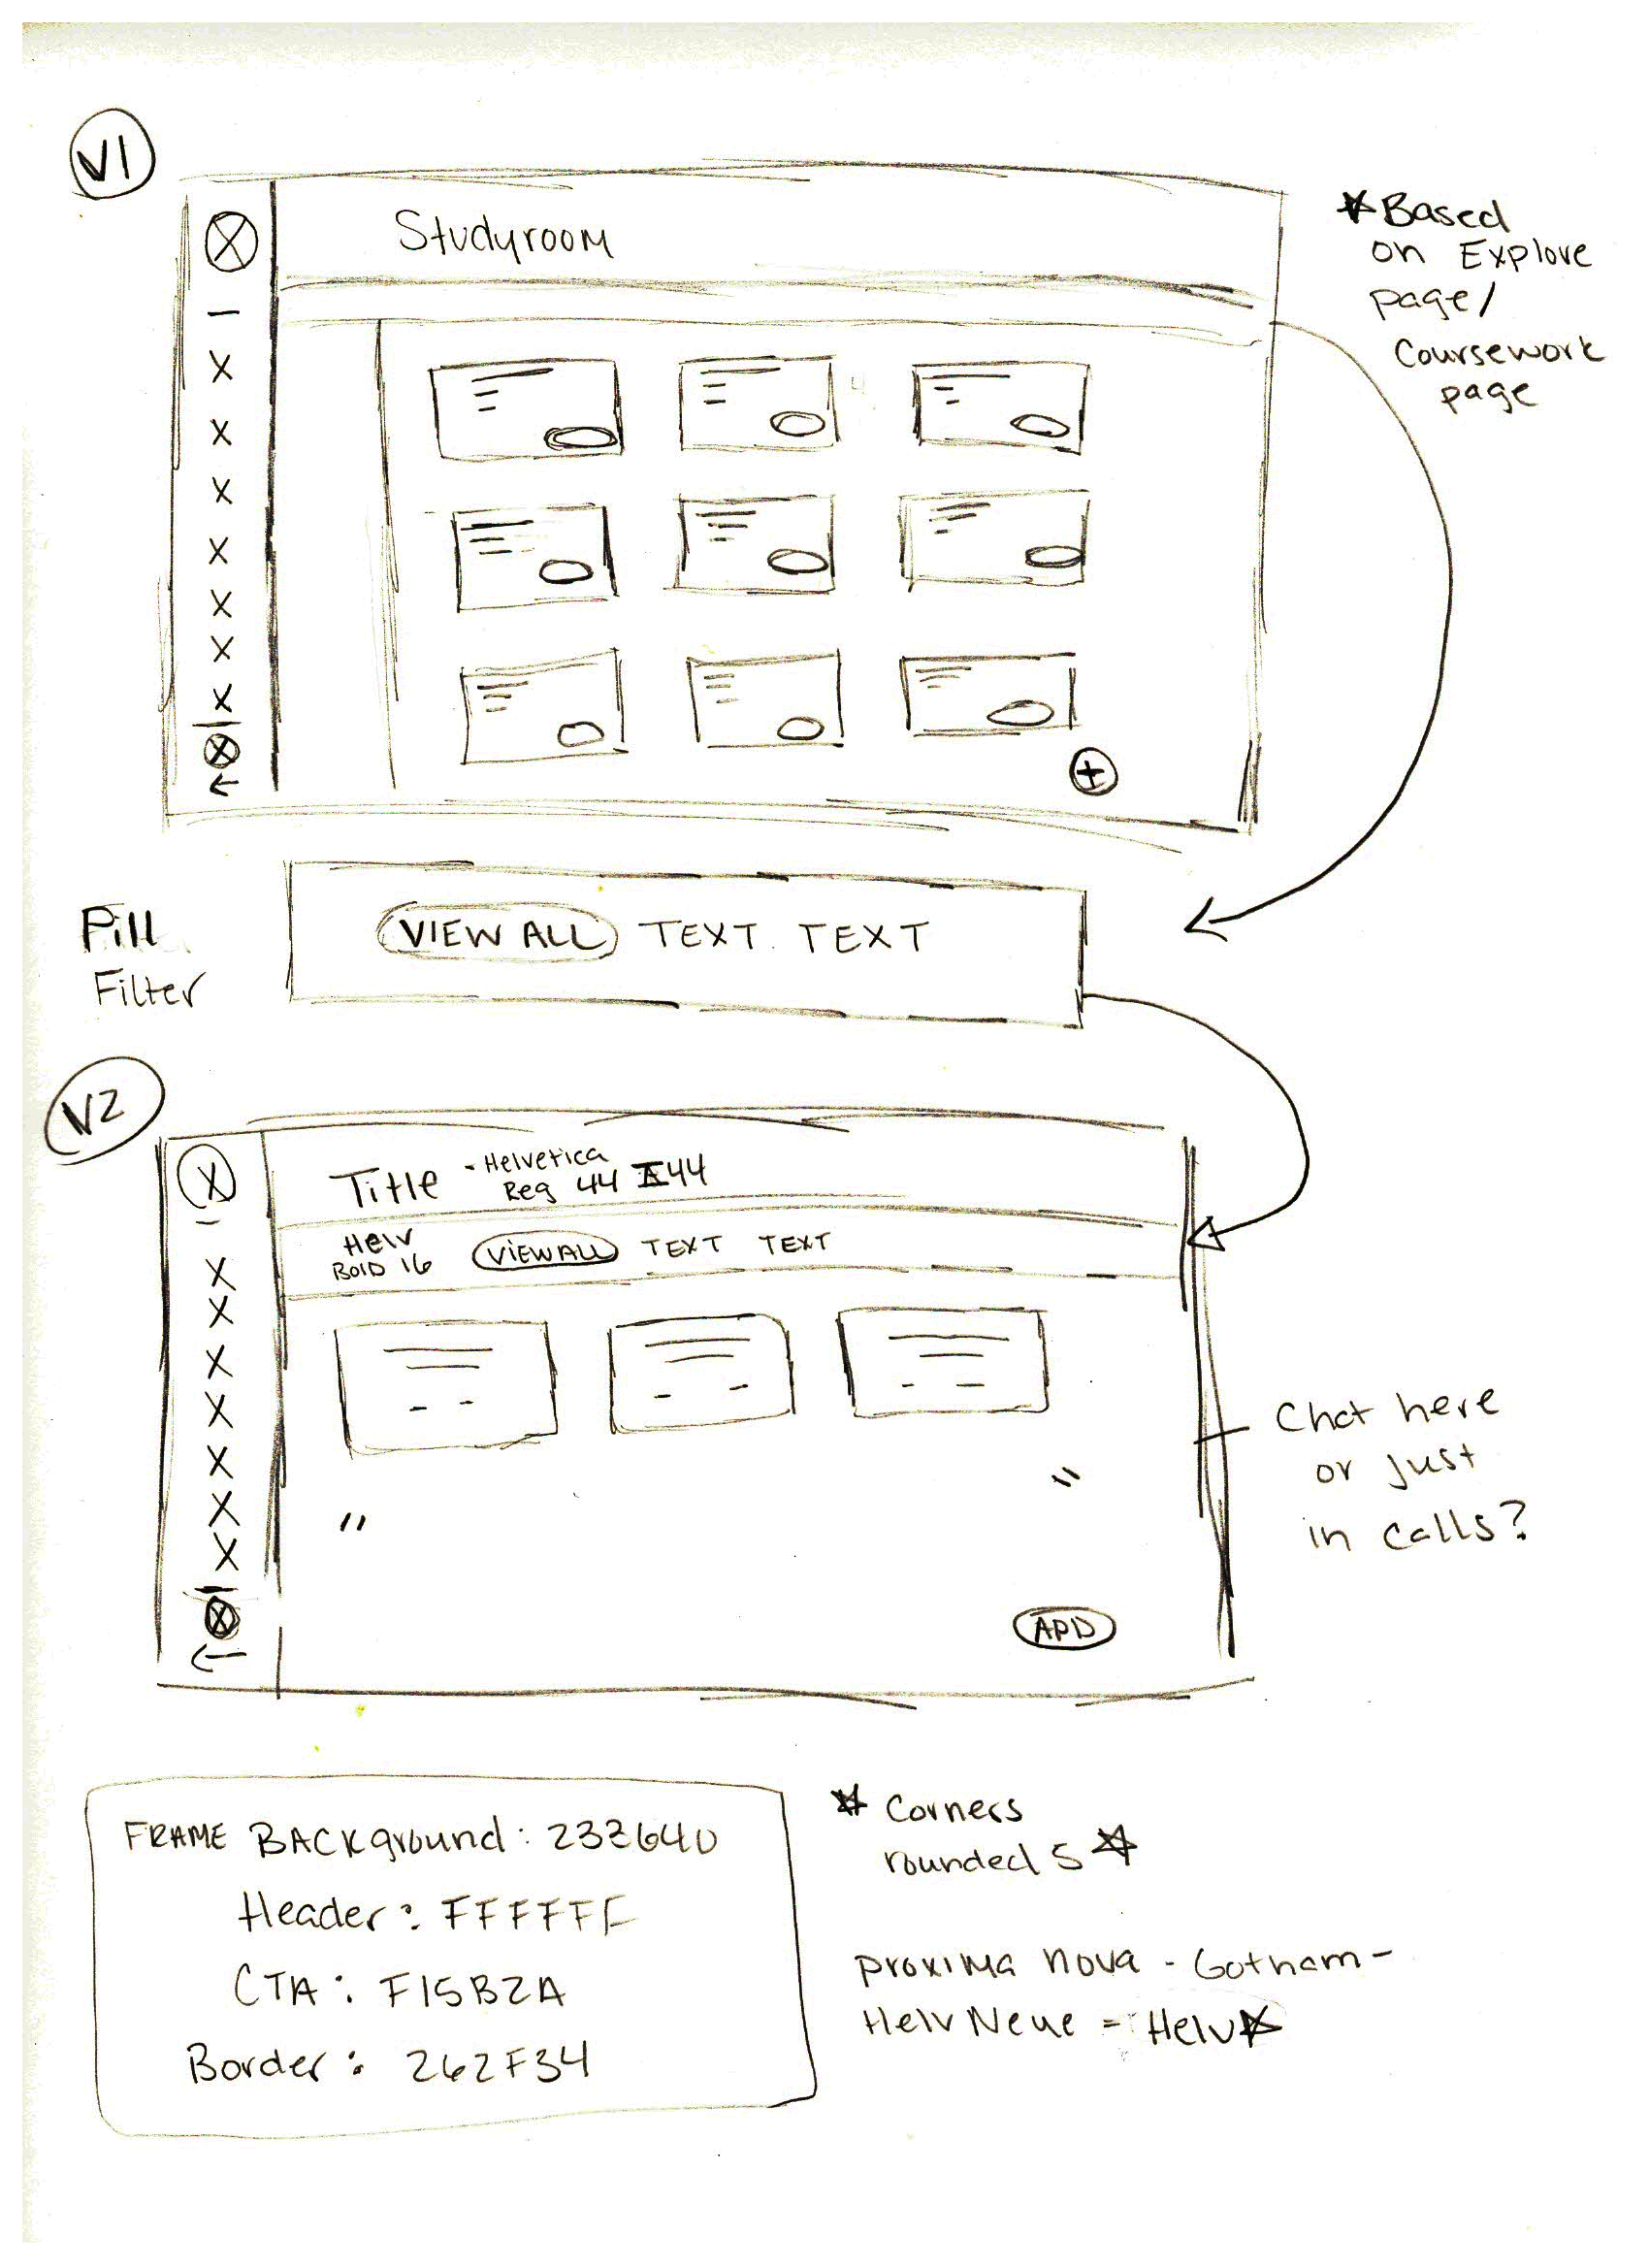 V1
Studyroom
*Based
on Explore
page/
Coursework
page
Pill
Filter
VIEW ALL TEXT TEXT
V2
Title - Helvetica
Reg 44 44
Helv
BOLD 16
VIEW ALL TEXT TEXT
Chat here
or just
in calls?
ADD
FRAME BACKground: 233640
Header: FFFFFF
CTA: F15B2A
Border: 262F34
* Corners
rounded 5 *
proxima nova - Gotham -
Helv Neue = Helv*